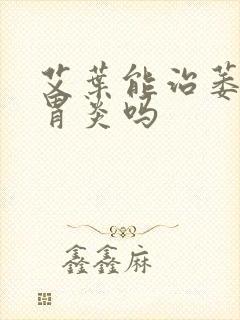 艾葉能治萎
胃炎吗
鑫鑫麻